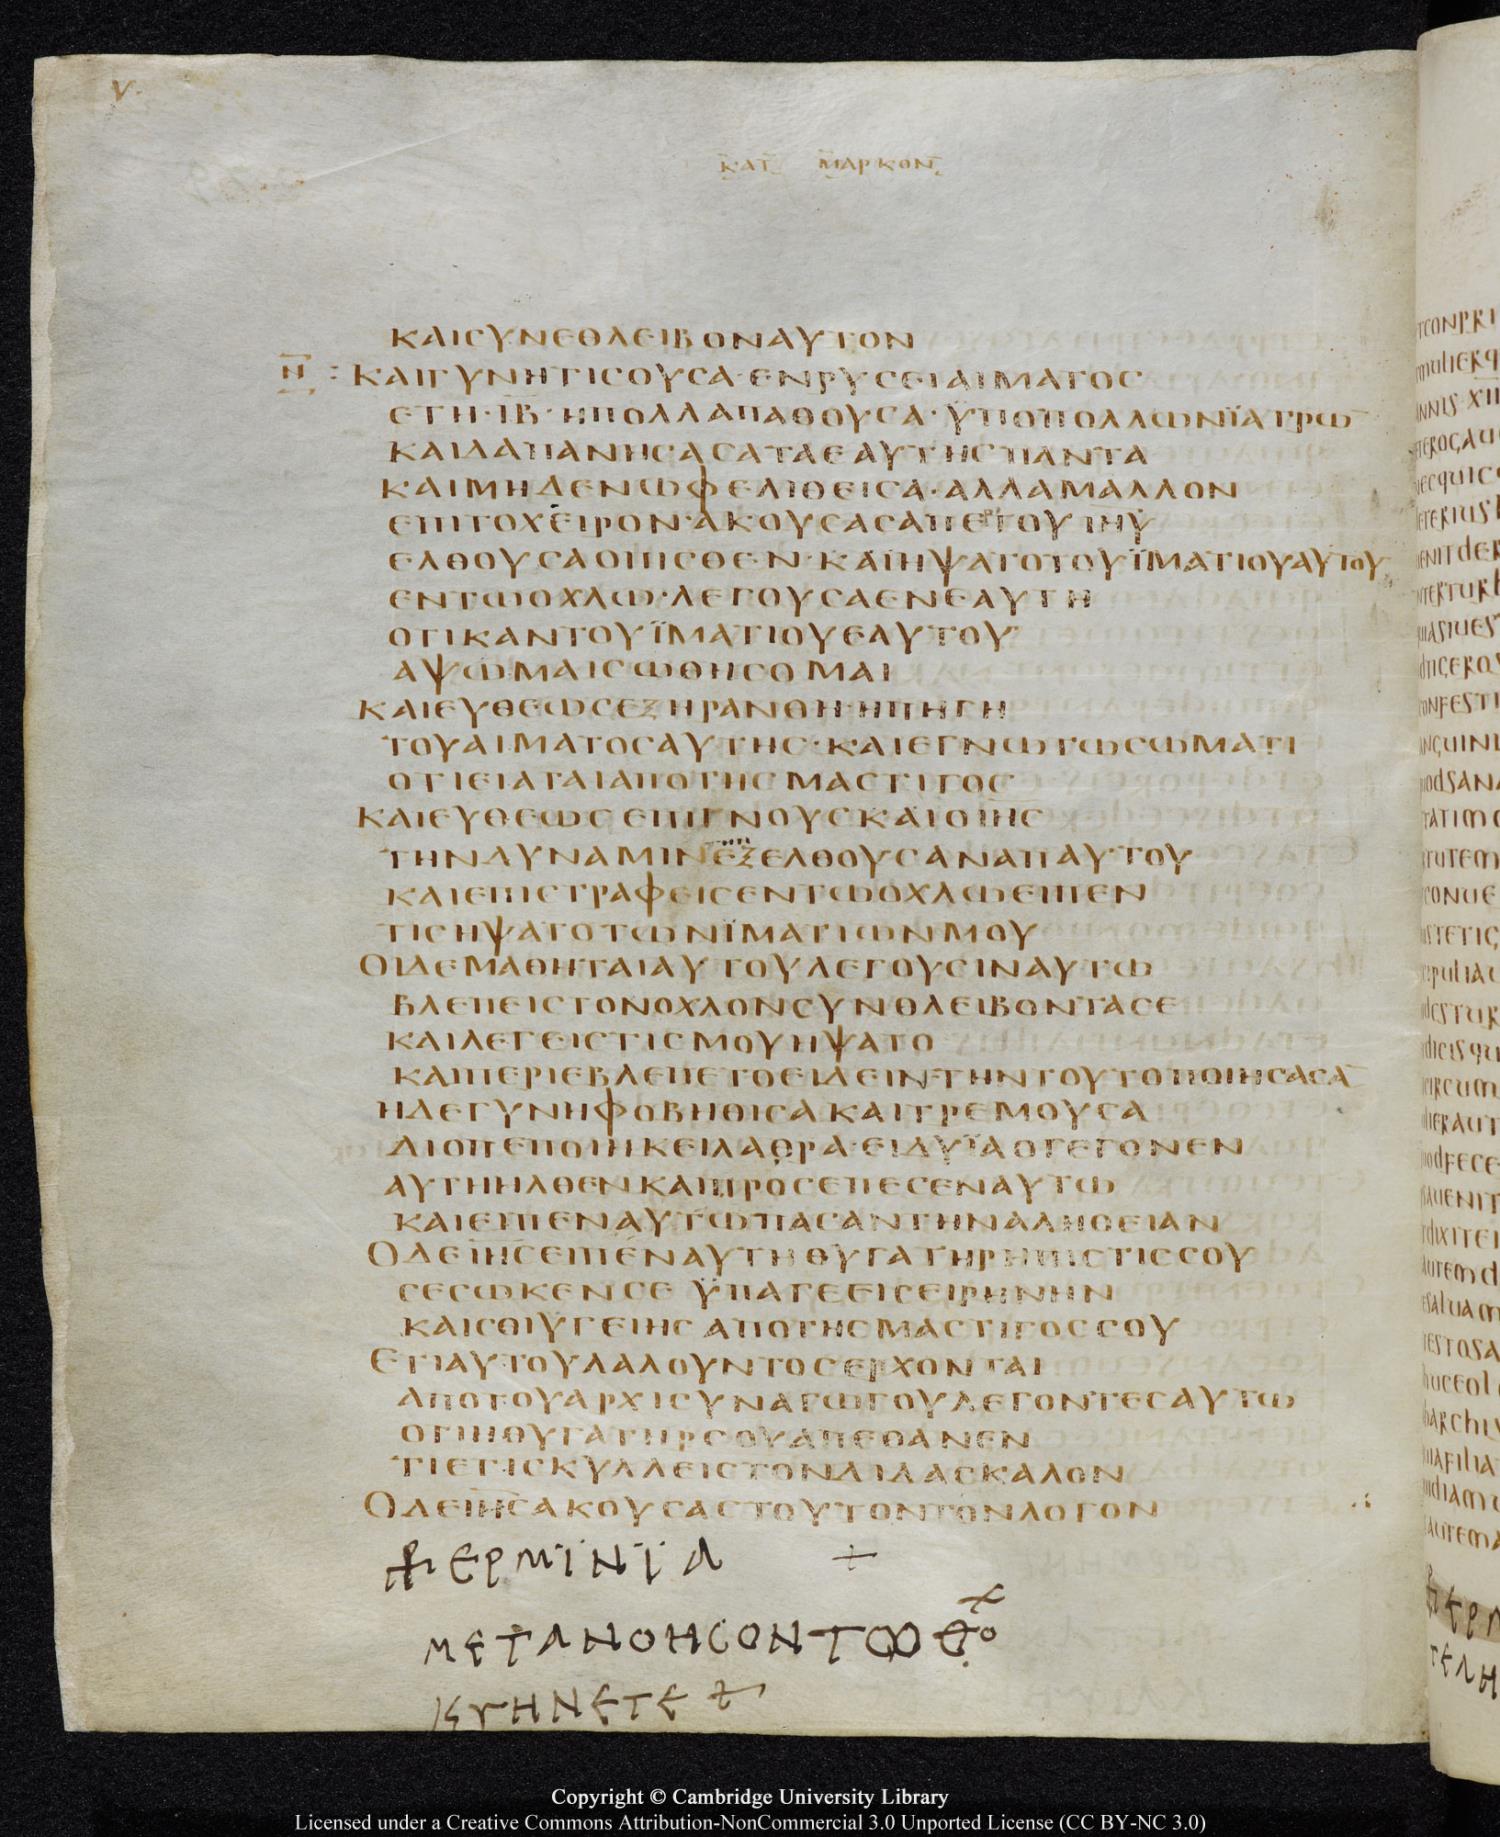 V·
ΚΑΤ ΜΑΡΚΟΝ
ΚΑΙΣΥΝΕΘΛΕΙΒΟΝΑΥΤΟΝ
Ν̅ : ΚΑΙΓΥΝΗΤΙΣΟΥΣΑ·ΕΝΡΥΣΕΙΑΙΜΑΤΟΣ
ΕΤΗ·ΙΒ̅·ΗΠΟΛΛΑΠΑΘΟΥΣΑ·ΫΠΟΠΟΛΛΩΝΪΑΤΡΩ̅
ΚΑΙΔΑΠΑΝΗΣΑΣΑΤΑΕΑΥΤΗΣΠΑΝΤΑ
ΚΑΙΜΗΔΕΝΩΦΕΛΙΘΕΙΣΑ·ΑΛΛΑΜΑΛΛΟΝ
ΕΠΙΤΟΧΕΙΡΟΝ·ΑΚΟΥΣΑΣΑΠΕΡΙΤΟΥΙΗΥ̅
ΕΛΘΟΥΣΑΟΠΙΣΘΕΝ·ΚΑΙΗΨΑΤΟΤΟΥΪΜΑΤΙΟΥΑΥΤΟΥ
ΕΝΤΩΟΧΛΩ·ΛΕΓΟΥΣΑΕΝΕΑΥΤΗ
ΟΤΙΚΑΝΤΟΥΪΜΑΤΙΟΥΕΑΥΤΟΥ
ΑΨΩΜΑΙΣΩΘΗΣΟΜΑΙ
ΚΑΙΕΥΘΕΩΣΕΞΗΡΑΝΘΗ·ΗΠΗΓΗ
ΤΟΥΑΙΜΑΤΟΣΑΥΤΗΣ·ΚΑΙΕΓΝΩΤΩΣΩΜΑΤΙ
ΟΤΙΕΙΑΤΑΙΑΠΟΤΗΣΜΑΣΤΙΓΟΣ
ΚΑΙΕΥΘΕΩΣΕΠΙΓΝΟΥΣΚΑΙΟΙΗΣ̅
ΤΗΝΔΥΝΑΜΙΝΕΞΕΛΘΟΥΣΑΝΑΠΑΥΤΟΥ
ΚΑΙΕΠΙΣΤΡΑΦΕΙΣΕΝΤΩΟΧΛΩΕΙΠΕΝ
ΤΙΣΗΨΑΤΟΤΩΝΪΜΑΤΙΩΝΜΟΥ
ΟΙΔΕΜΑΘΗΤΑΙΑΥΤΟΥΛΕΓΟΥΣΙΝΑΥΤΩ
ΒΛΕΠΕΙΣΤΟΝΟΧΛΟΝΣΥΝΘΛΕΙΒΟΝΤΑΣΕ
ΚΑΙΛΕΓΕΙΣΤΙΣΜΟΥΗΨΑΤΟ
ΚΑΙΠΕΡΙΕΒΛΕΠΕΤΟΕΙΔΕΙΝΤΗΝΤΟΥΤΟΠΟΙΗΣΑΣΑ̅
ΗΔΕΓΥΝΗΦΟΒΗΘΙΣΑΚΑΙΤΡΕΜΟΥΣΑ
ΔΙΟΠΕΠΟΙΗΚΕΙΛΑΘΡΑ·ΕΙΔΥΪΑΟΓΕΓΟΝΕΝ
ΑΥΤΗΗΛΘΕΝΚΑΙΠΡΟΣΕΠΕΣΕΝΑΥΤΩ
ΚΑΙΕΙΠΕΝΑΥΤΩΠΑΣΑΝΤΗΝΑΛΗΘΕΙΑΝ
ΟΔΕΙΗΣ̅ΕΙΠΕΝΑΥΤΗΘΥΓΑΤΗΡΗΠΙΣΤΙΣΣΟΥ
ΣΕΣΩΚΕΝΣΕ ΫΠΑΓΕΕΙΣΕΙΡΗΝΗΝ
ΚΑΙΣΘΙΥΓΕΙΗΣΑΠΟΤΗΣΜΑΣΤΙΓΟΣΣΟΥ
ΕΤΙΑΥΤΟΥΛΑΛΟΥΝΤΟΣΕΡΧΟΝΤΑΙ
ΑΠΟΤΟΥΑΡΧΙΣΥΝΑΓΩΓΟΥΛΕΓΟΝΤΕΣΑΥΤΩ
ΟΤΙΗΘΥΓΑΤΗΡΣΟΥΑΠΕΘΑΝΕΝ
ΤΙΕΤΙΣΚΥΛΛΕΙΣΤΟΝΔΙΔΑΣΚΑΛΟΝ
ΟΔΕΙΗΣ̅ΑΚΟΥΣΑΣΤΟΥΤΟΝΤΟΝΛΟΓΟΝ
ΕΡΜΪΝΪΑ +
ΜΕΤΑΝΟΗΣΟΝΤΩΘΟ
ΚΥΗΝΕΤΕ
Copyright © Cambridge University Library
Licensed under a Creative Commons Attribution-NonCommercial 3.0 Unported License (CC BY-NC 3.0)